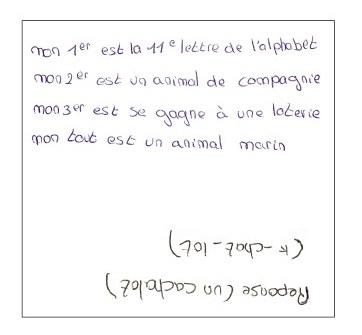 mon 1er est la 11e lettre de l'alphabet
mon 2er est un animal de compagnie
mon 3er est se gagne à une loterie
mon tout est un animal marin
Reponse (un cachalot)
(k-chat-lot)